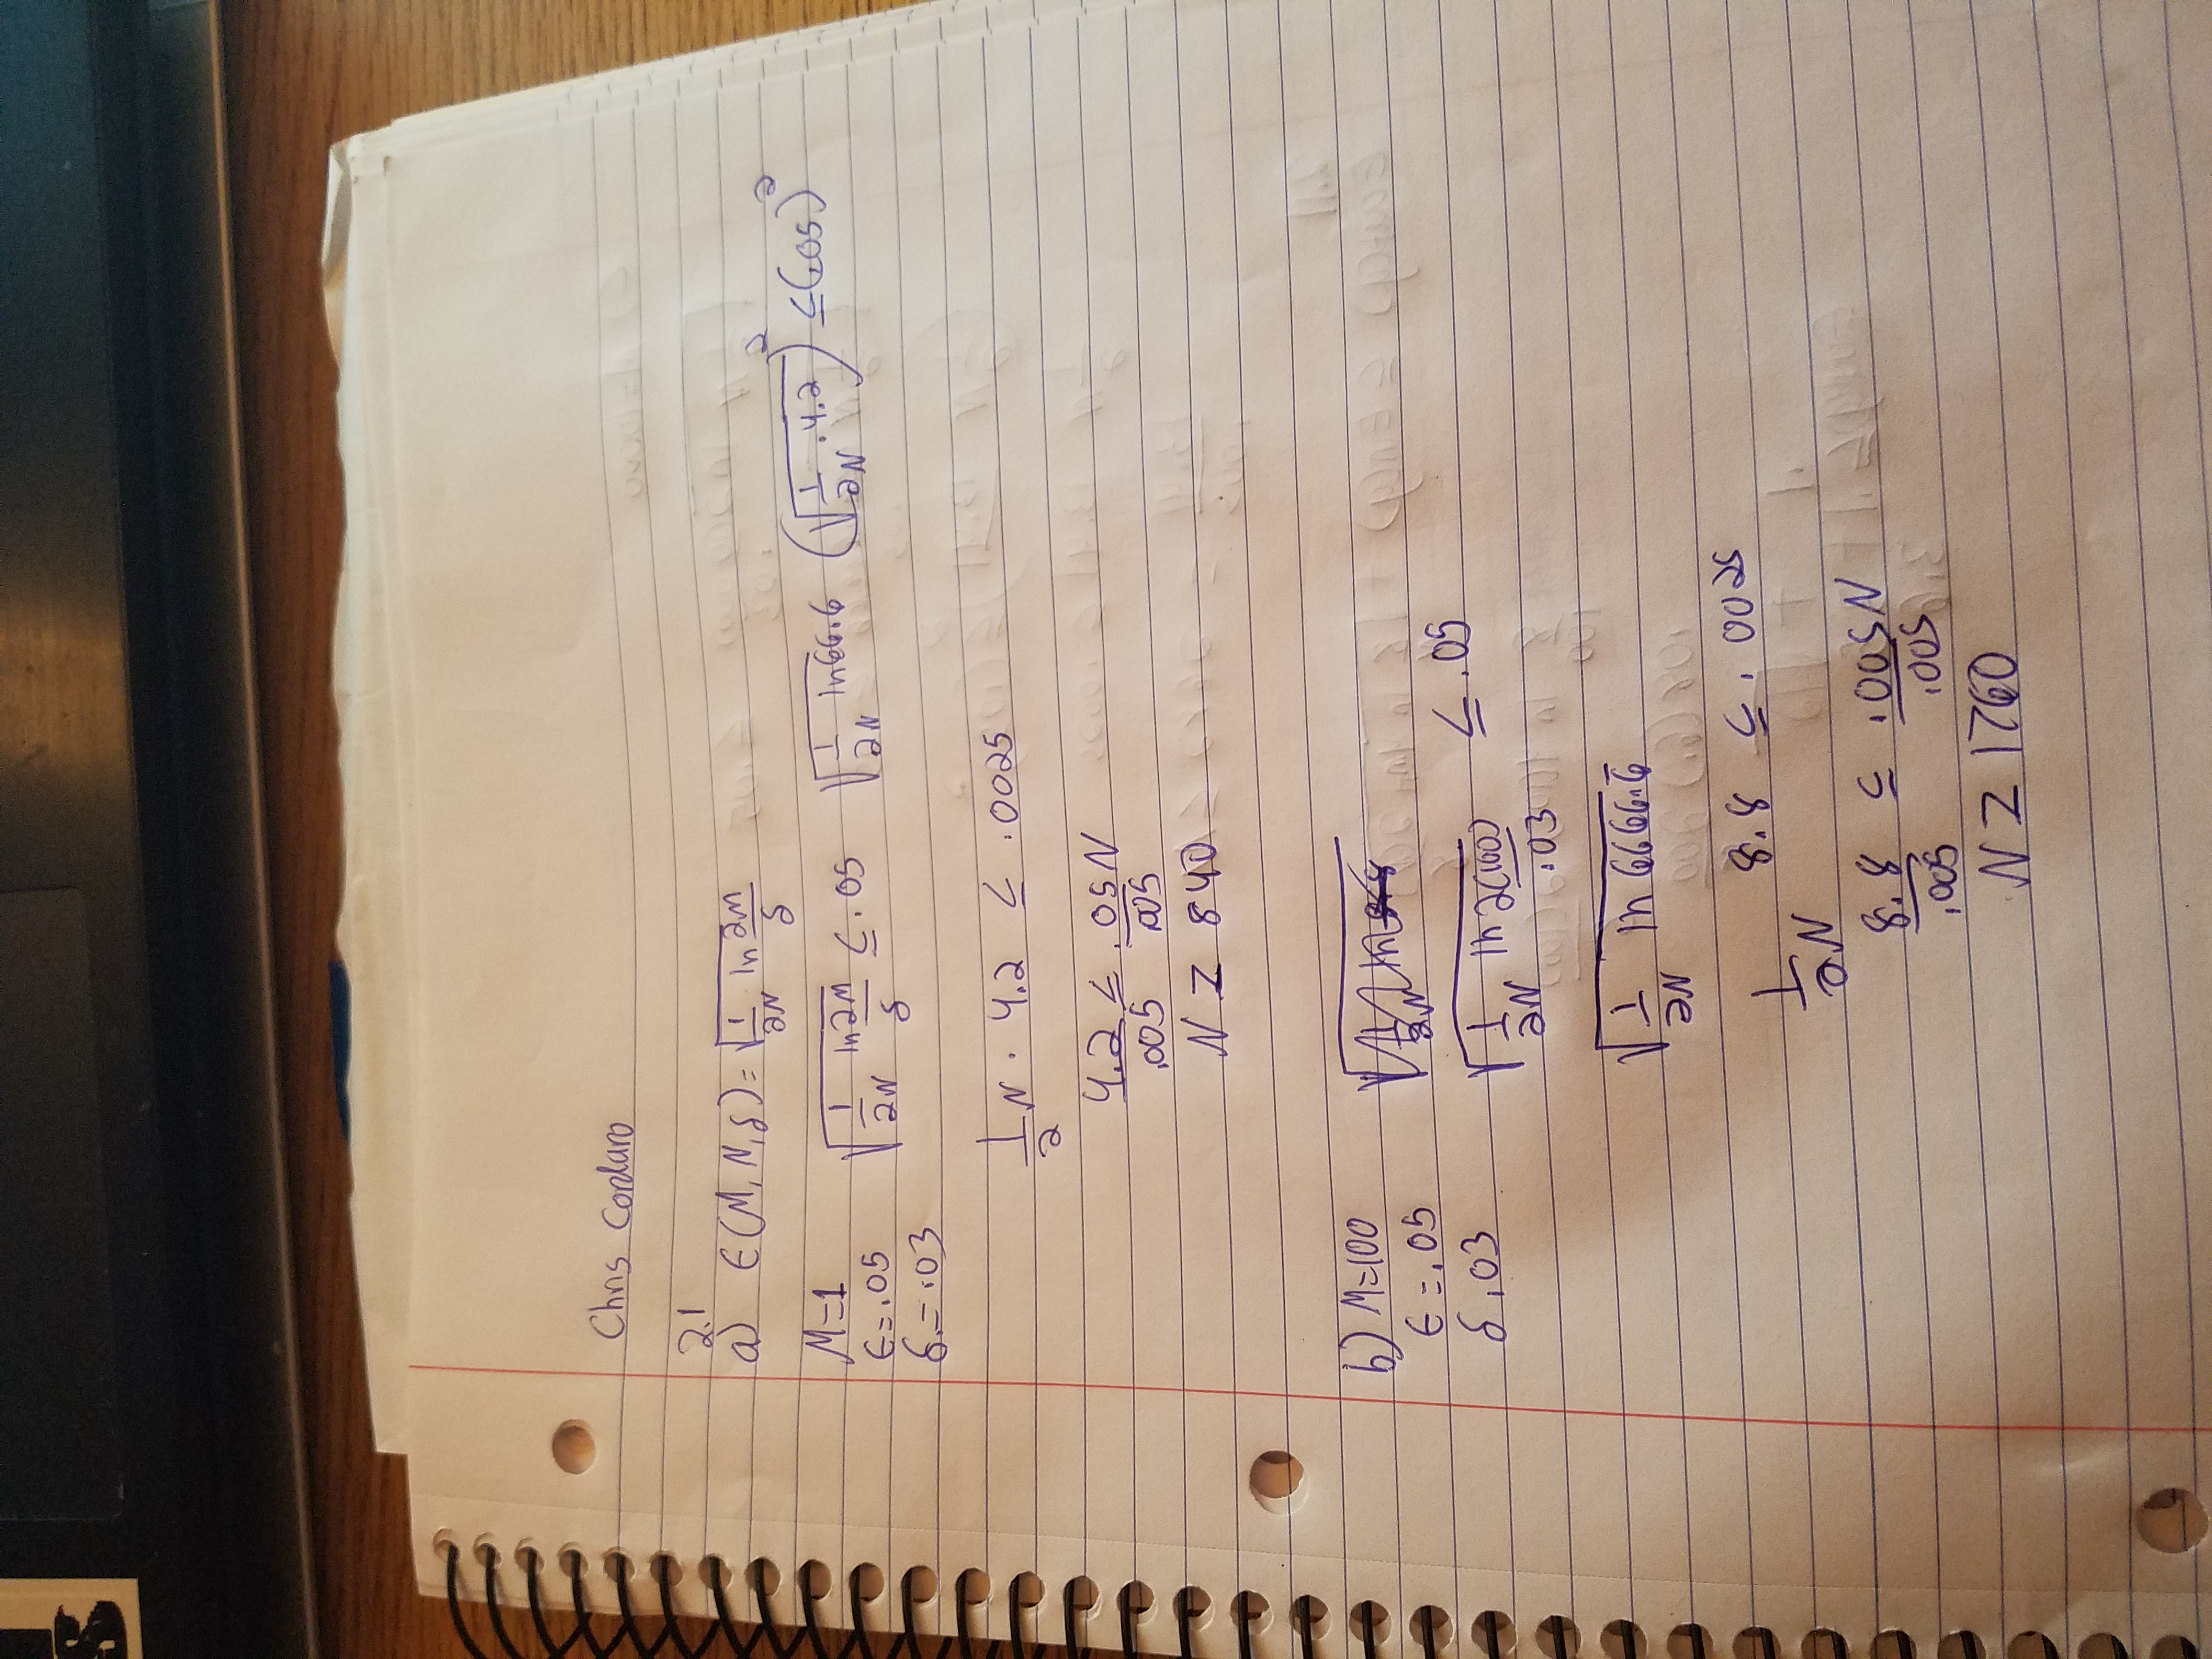 S
Chris Cordaro
2.1
a) ϵ(M,N,δ)=√(1/2N ln 2M/δ)
M=1 √(1/2N ln 2M/δ) ≤ .05 √(1/2N ln 66.6 (√(1/2N · 4.2))² ≤ (.05)²
ϵ=.05
δ=.03
1/2 N · 4.2 ≤ .0025
4.2/.005 ≤ .05N/.005
N ≥ 840
b) M=100
ϵ=.05
δ .03
√(1/2N ln 2(100)/.03) ≤ .05
√(1/2N ln 6666.6̅)
1/2N 8.8 ≤ .0025
8.8/.005 ≤ .005N/.005
N ≥ 1760